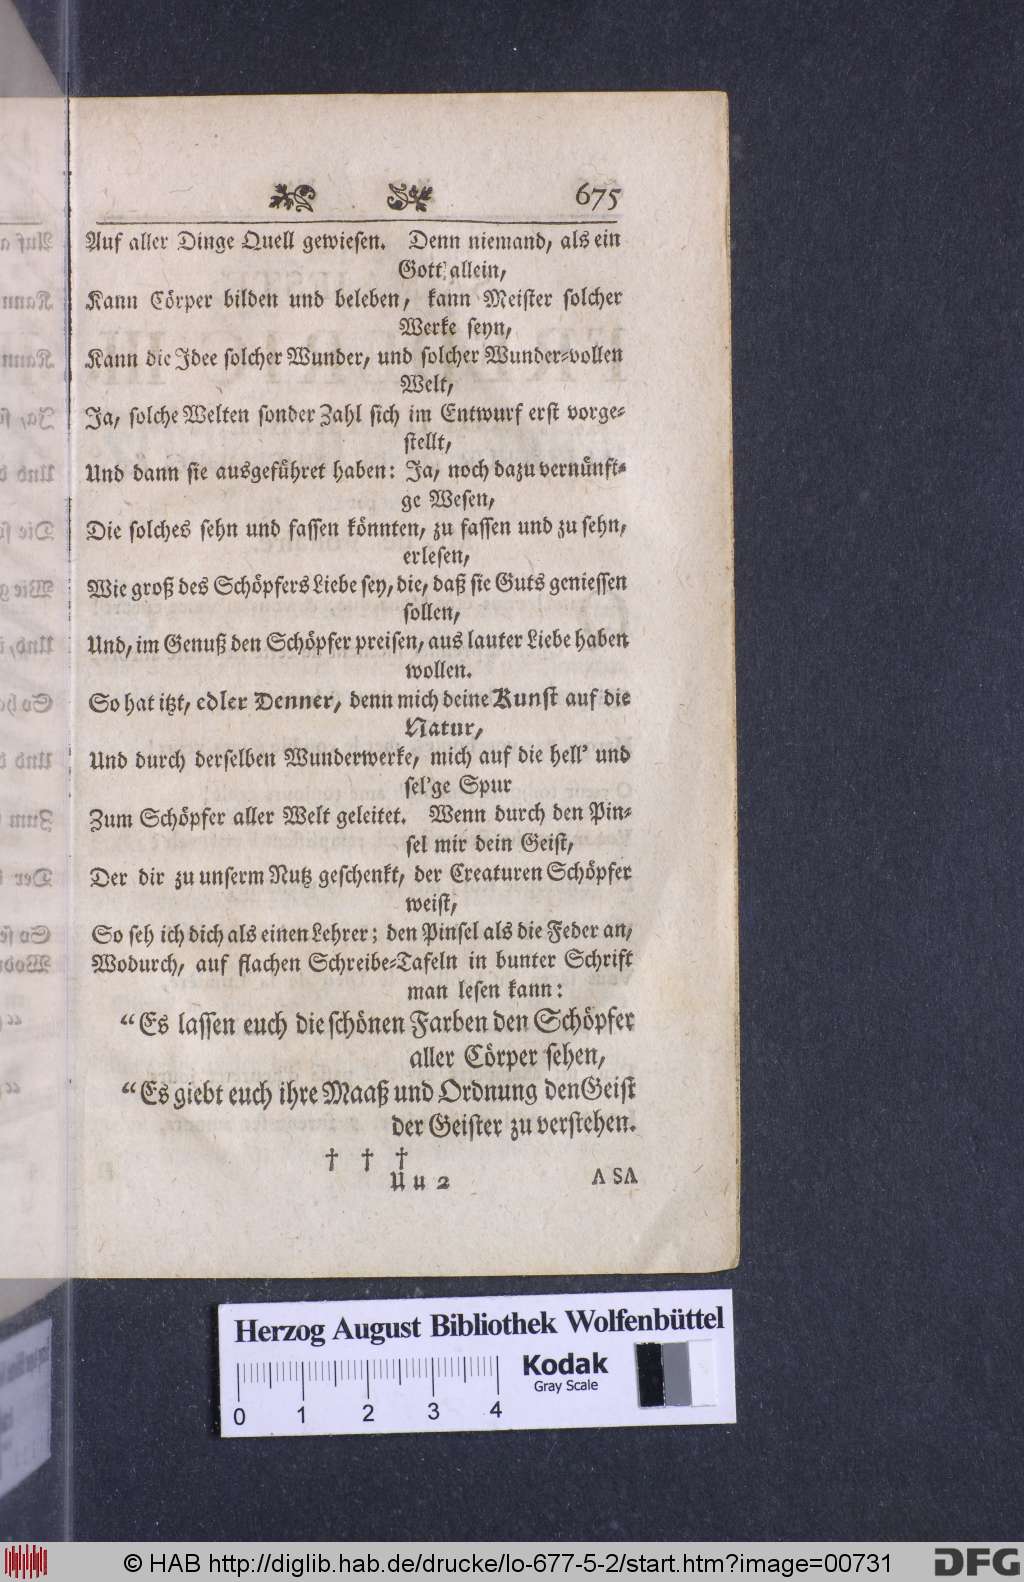 675
Auf aller Dinge Quell gewiesen. Denn niemand, als ein
Gott allein,
Kann Cörper bilden und beleben, kann Meister solcher
Werke seyn,
Kann die Idee solcher Wunder, und solcher Wunder-vollen
Welt,
Ja, solche Welten sonder Zahl sich im Entwurf erst vorge-
stellt,
Und dann sie ausgeführet haben: Ja, noch dazu vernünft-
ge Wesen,
Die solches sehn und fassen könnten, zu fassen und zu sehn,
erlesen,
Wie groß des Schöpfers Liebe sey, die, daß sie Guts geniessen
sollen,
Und, im Genuß den Schöpfer preisen, aus lauter Liebe haben
wollen.
So hat itzt, edler Denner, denn mich deine Kunst auf die
Natur,
Und durch derselben Wunderwerke, mich auf die hell' und
sel'ge Spur
Zum Schöpfer aller Welt geleitet. Wenn durch den Pin-
sel mir dein Geist,
Der dir zu unserm Nutz geschenkt, der Creaturen Schöpfer
weist,
So seh ich dich als einen Lehrer; den Pinsel als die Feder an,
Wodurch, auf flachen Schreibe-Tafeln in bunter Schrift
man lesen kann:
“Es lassen euch die schönen Farben den Schöpfer
aller Cörper sehen,
“Es giebt euch ihre Maaß und Ordnung den Geist
der Geister zu verstehen.
† † †
Uu 2
A SA
Herzog August Bibliothek Wolfenbüttel
Kodak
Gray Scale
0 1 2 3 4
© HAB http://diglib.hab.de/drucke/lo-677-5-2/start.htm?image=00731
DFG